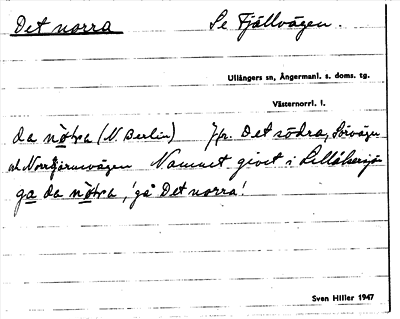 Det norra Se Fjällvägen.
Ullångers sn, Ångermanl. s. doms. tg.
Västernorrl. l.
da nötra (N Berlin) Jfr. Det södra, Sörvägen
och Norrtjärnsvägen Namnet givet i Lillåkersjö
ga da nötra, 'gå Det norra'.
Sven Hiller 1947